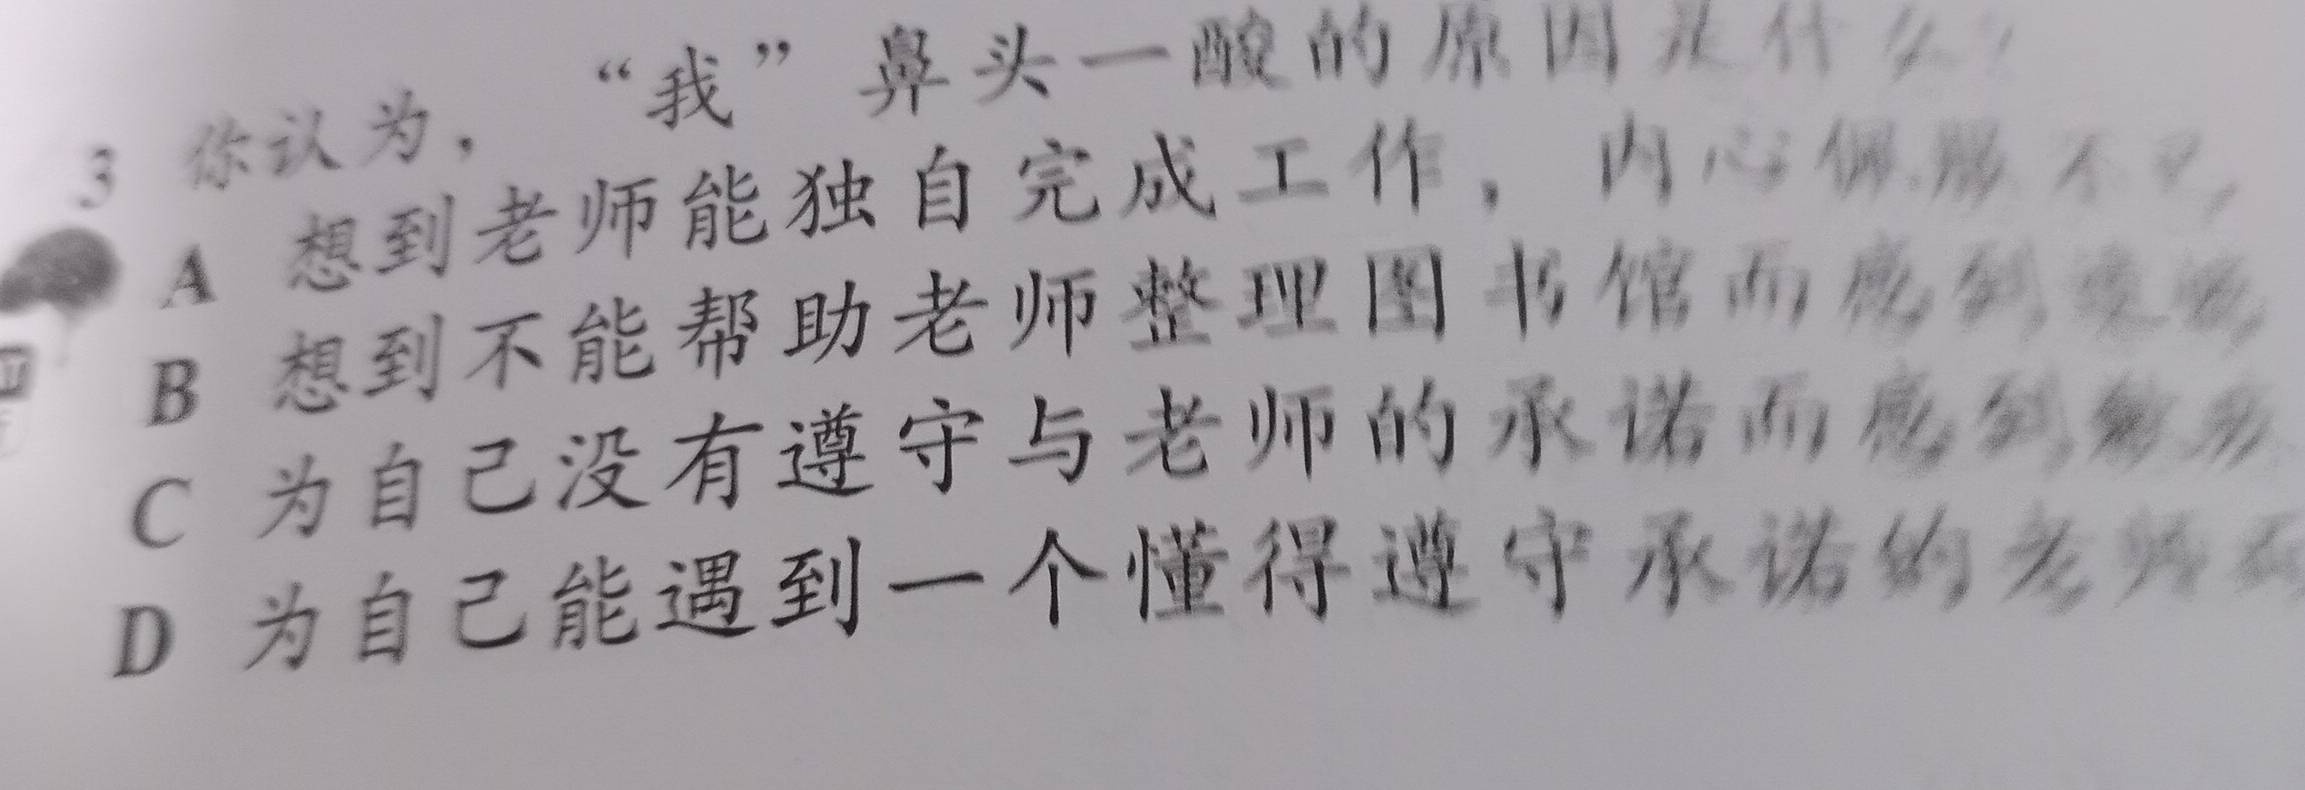 3 你认为，“我”鼻头一酸的原因是什么？
A 想到老师能独自完成工作，内心佩服不已，
B 想到不能帮助老师整理图书馆而感到
C 为自己没有遵守与老师的承诺而感到
D 为自己能遇到一个懂得遵守承诺的老师而